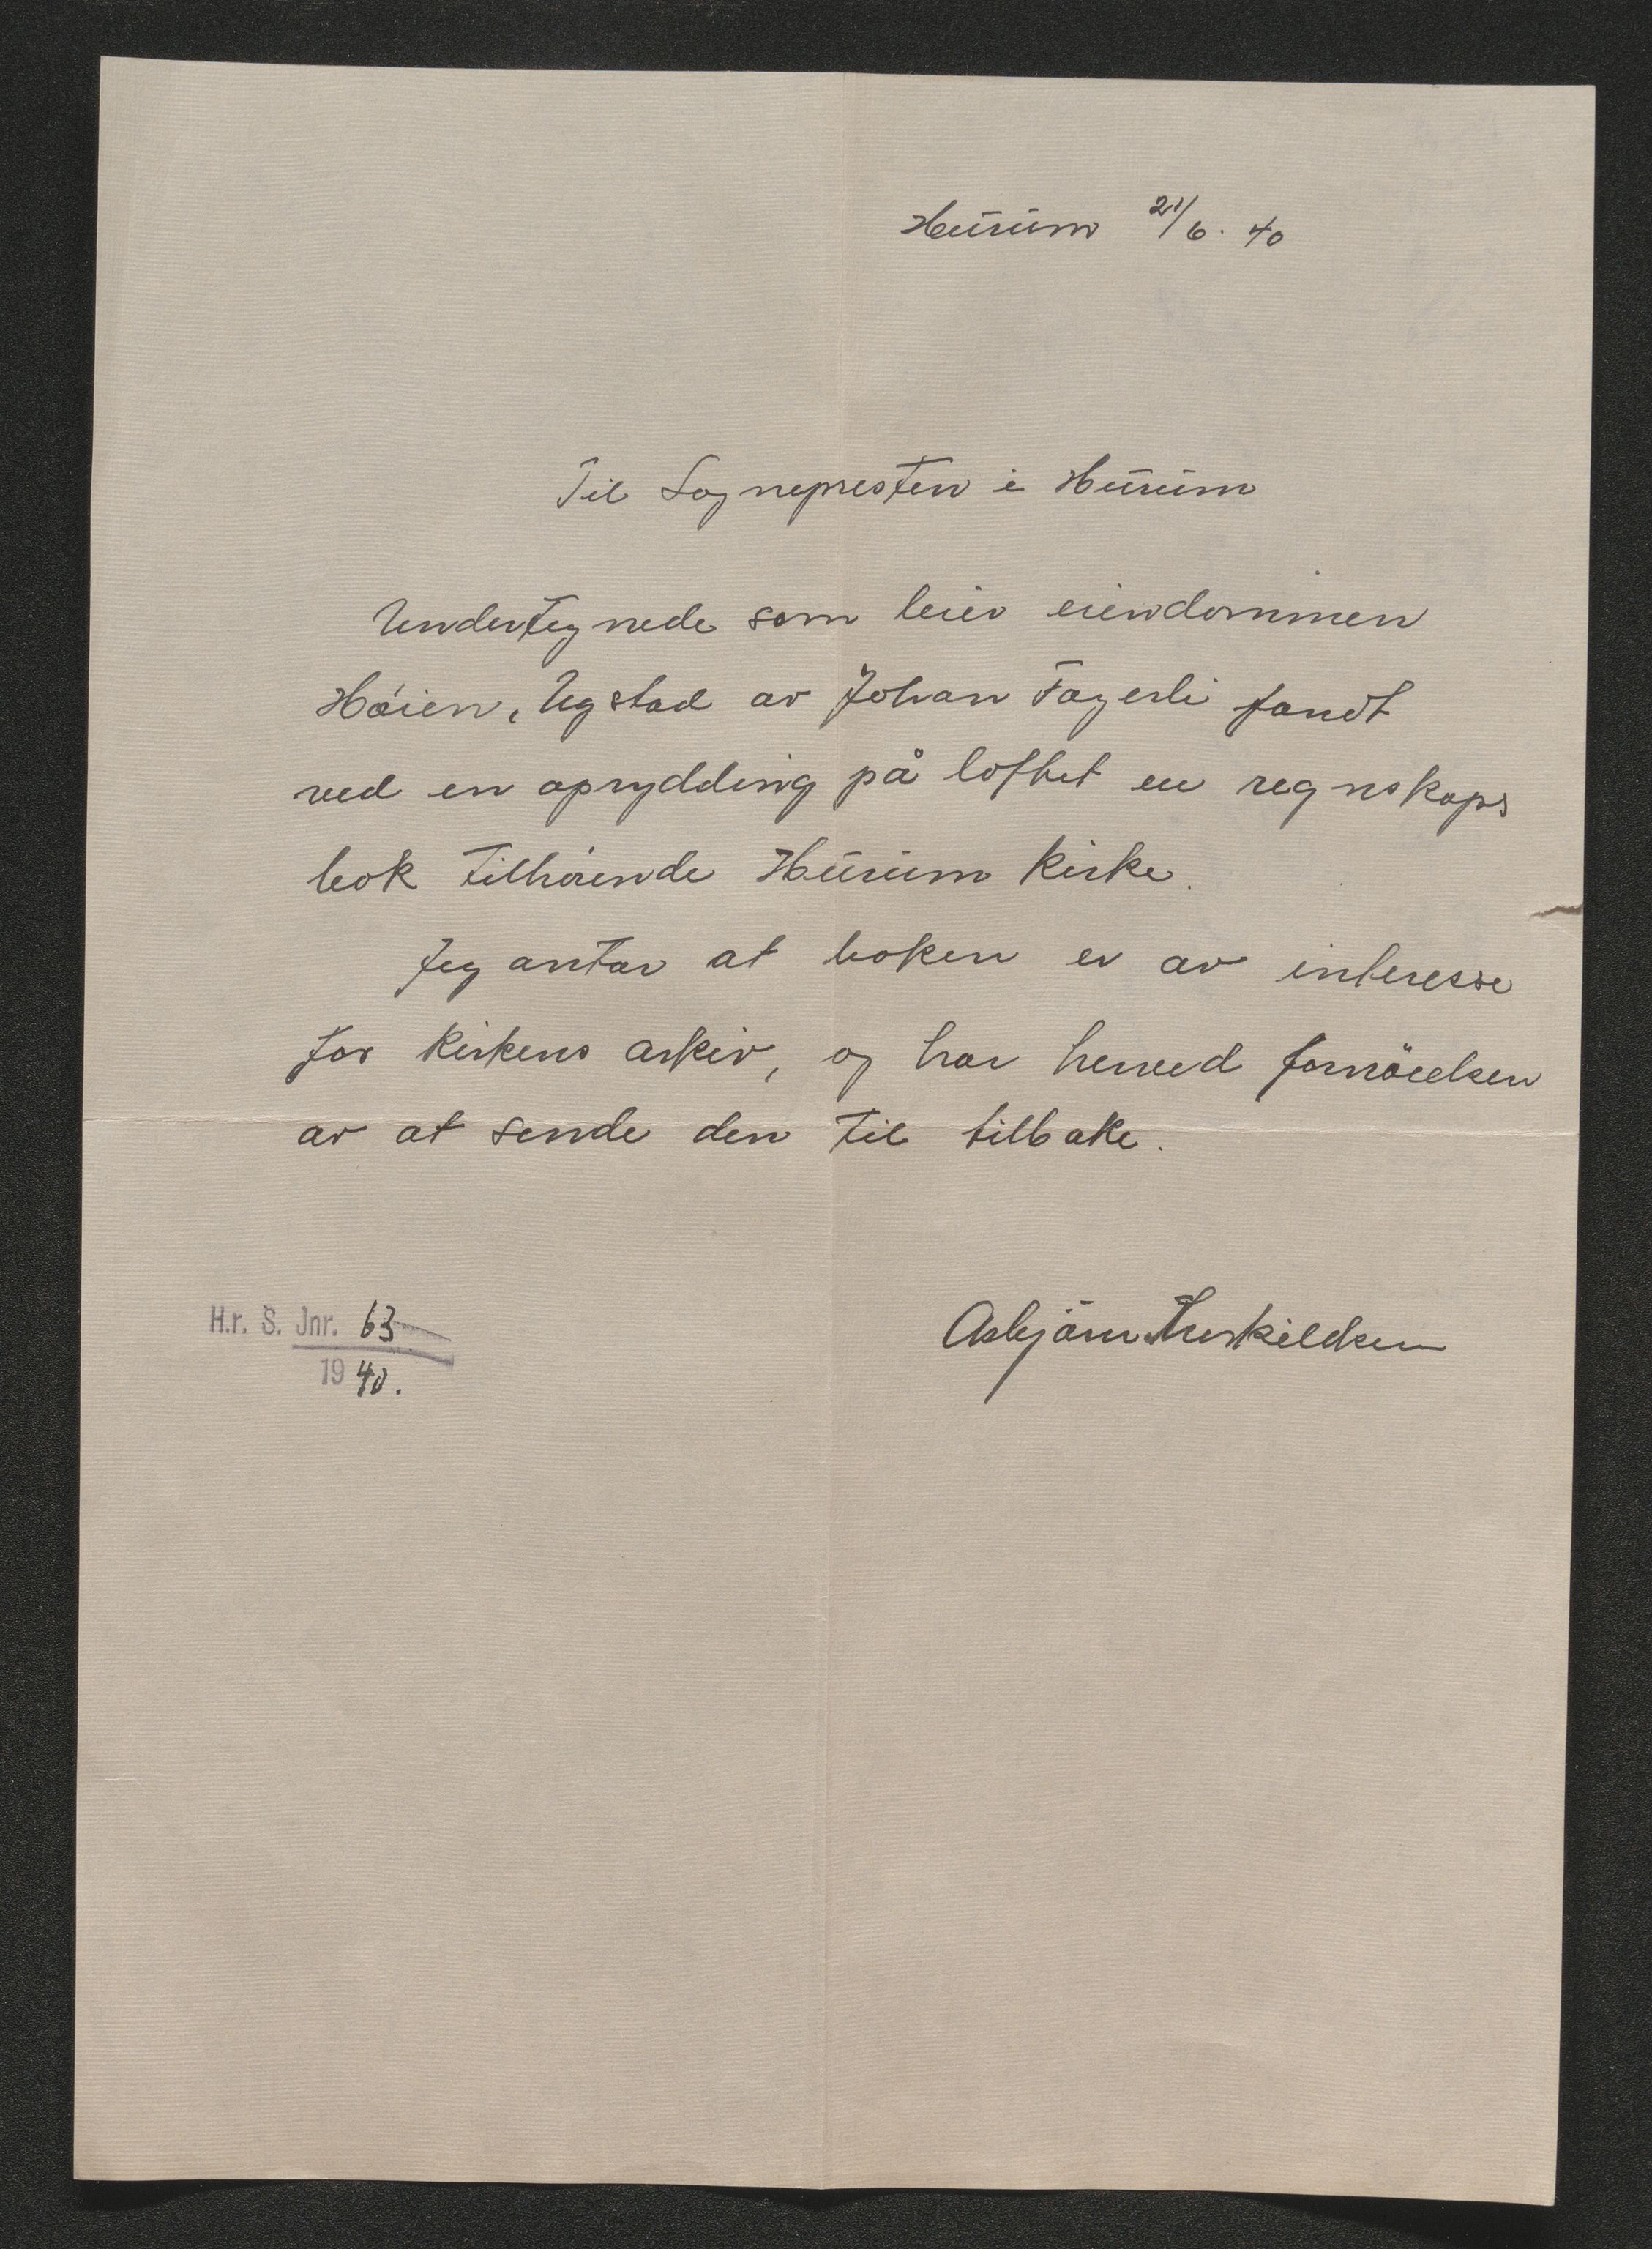 Hurum 21/6. 40
Til Sognepresten i Hurum
Undertegnede som leier eiendommen
Høien, Ugstad av Johan Fagerli fandt
ved en oprydding på loftet en regnskaps
bok tilhørende Hurum Kirke.
Jeg antar at boken er av interesse
for Kirkens arkiv, og har herved fornöielsen
av at sende den til tilbake.
Asbjörn Therkildsen
H.r. S. Jnr. 63
1940.